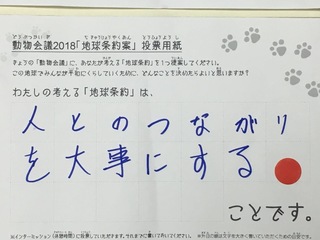 動物会議2018「地球条約案」投票用紙
きょうの「動物会議」に、あなたが考える「地球条約」を1つ提案してください。
この地球でみんなが平和にくらしていくために、どんなことを決めたらよいと思いますか?
わたしの考える「地球条約」は、
人とのつながり
を大事にする
ことです。